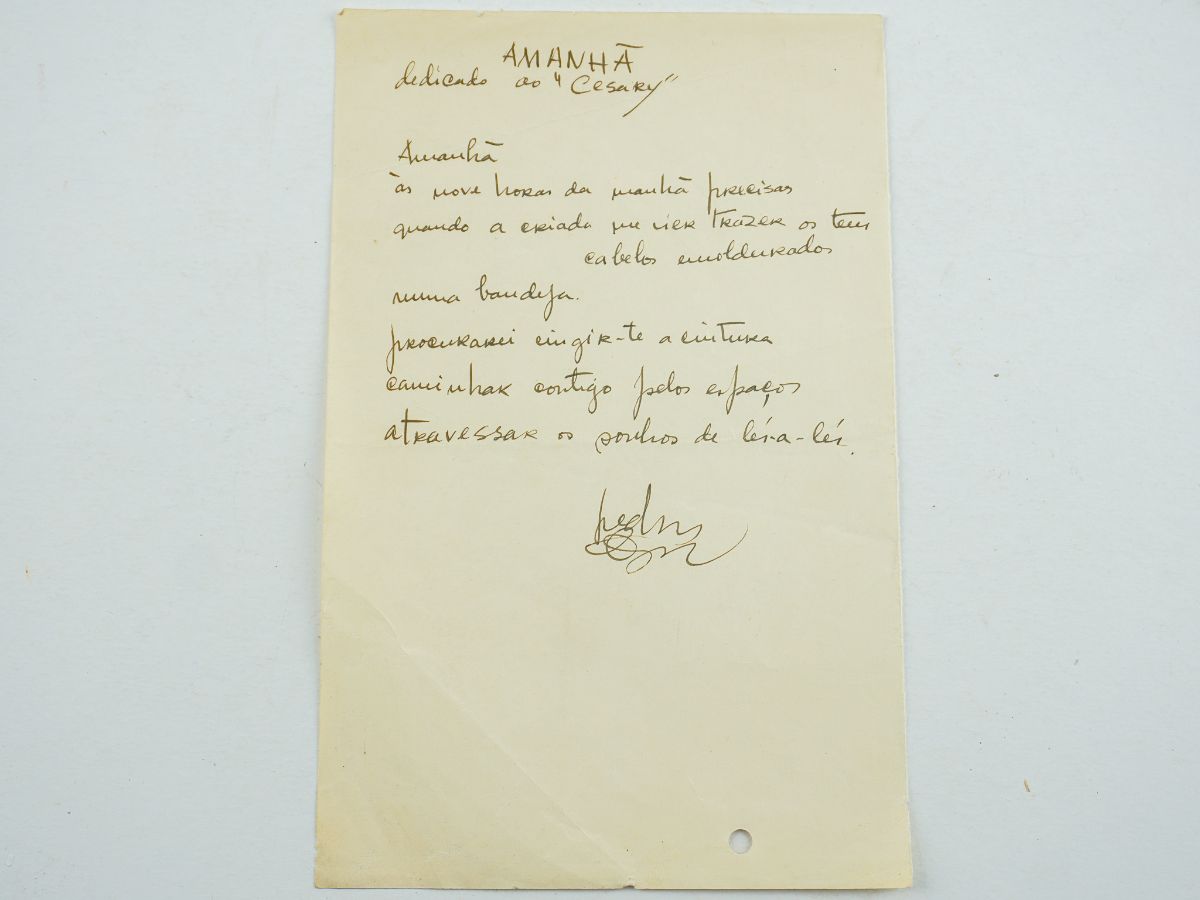 AMANHÃ
dedicado ao "Cesary"
Amanhã
às nove horas da manhã precisas
quando a criada me vier trazer os teus
cabelos emoldurados
numa bandeja.
procurarei cingir-te a cintura
caminhar contigo pelos espaços
atravessar os sonhos de lés-a-lés.
pedro